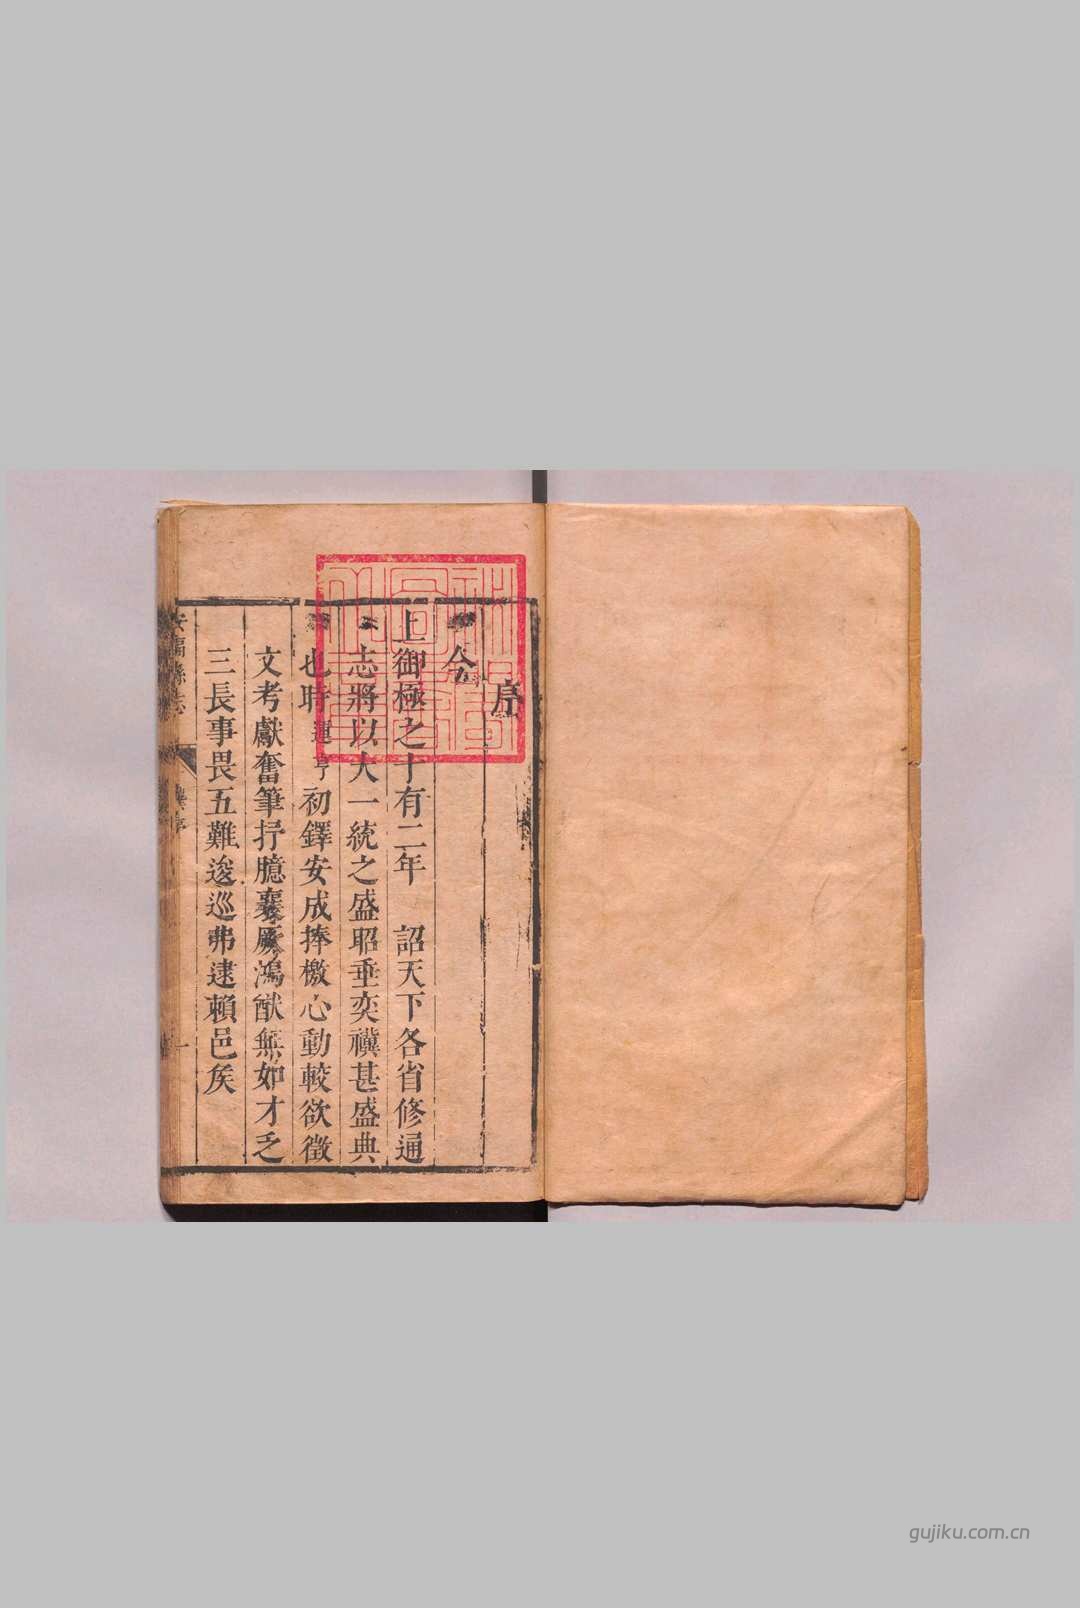 序
今
上御極之十有二年　詔天下各省修通
志將以大一統之盛昭垂奕禩甚盛典
也時運亨初鐸安成捧檄心動較欲徵
文考獻奮筆抒臆襄厥鴻猷無如才乏
三長事畏五難逡巡弗逮賴邑矦
安福縣志
一
gujiku.com.cn